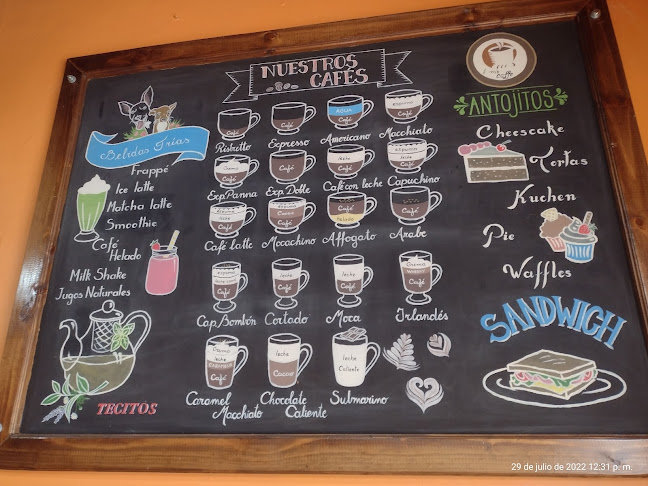 NUESTROS
CAFÉS
Bebidas Frías
Frappé
Ice latte
Matcha latte
Smoothie
Café
Helado
Milk Shake
Jugos Naturales
TECITOS
Café
Ristretto
Café
Espresso
AGUA
Café
Americano
espuma
Café
Macchiato
Crema
Café
Esp. Panna
Café
Exp. Doble
leche
Café
Café con leche
espuma
leche
Café
Capuchino
espuma
leche
Café
Café latte
Cacao
Café
Mocachino
Café
helado
Affogato
Café
Arabe
espuma
Café
Cap. Bombón
leche
Café
Cortado
leche
Café
Moca
Crema
WHISKY
Café
Irlandés
Crema
leche
CARAMELO
Café
Caramel
Macchiato
leche
Cacao
Chocolate
Caliente
leche
Caliente
Submarino
ANTOJITOS
Cheescake
Tortas
Kuchen
Pie
Waffles
SANDWICH
29 de julio de 2022 12:31 p. m.